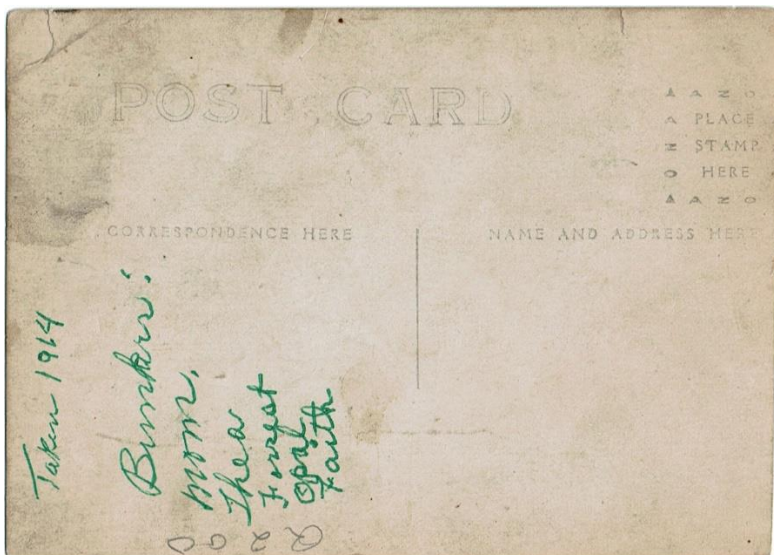 POST CARD
AAZO
PLACE
STAMP
HERE
AAZO
CORRESPONDENCE HERE
NAME AND ADDRESS HERE
Taken 1914
Bunkers:
Mom,
Thea
Forrest
Opal
Faith